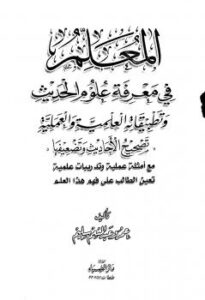 المعلم
في معرفة علوم الحديث
وتطبيقاته العلمية والعملية
تصحيح الأحاديث وتضعيفها
مع أمثلة عملية وتدريبات علمية
تعين الطالب على فهم هذا العلم
تأليف